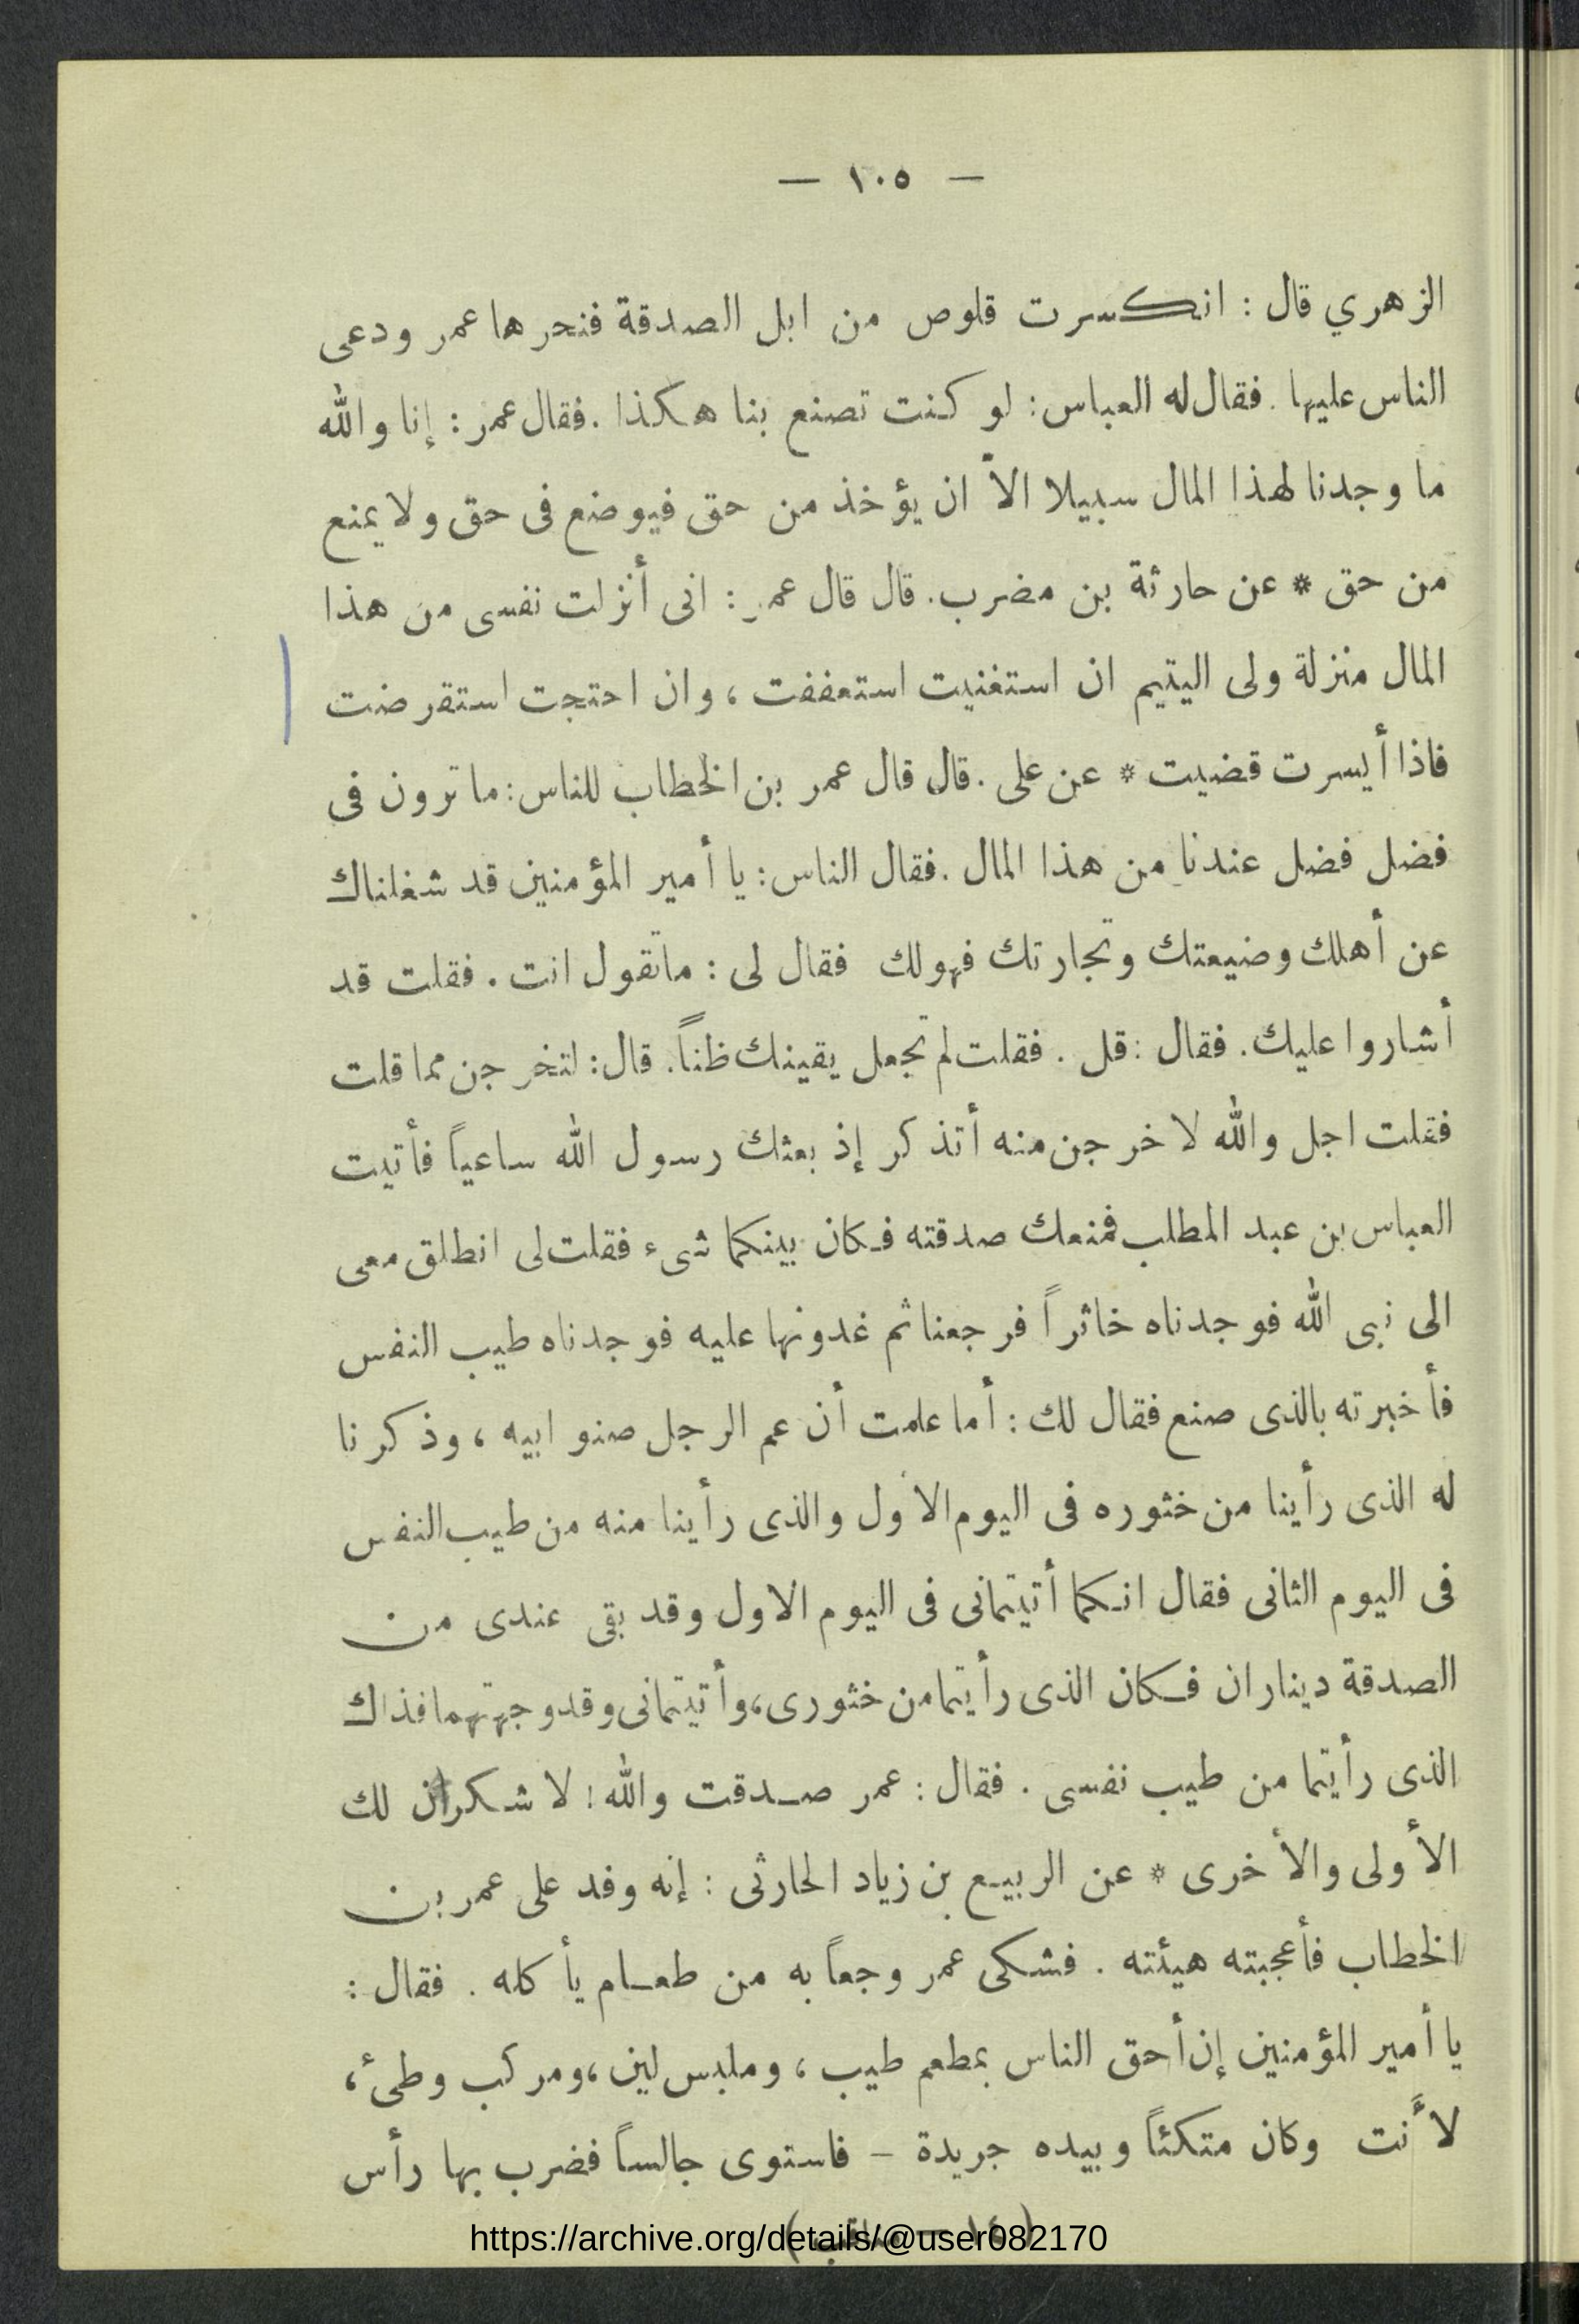 — ١٠٥ —
الزهري قال : انكسرت قلوص من ابل الصدقة فنحرها عمر ودعى
الناس عليها . فقال له العباس : لو كنت تصنع بنا هكذا . فقال عمر : إنا والله
ما وجدنا لهذا المال سبيلا الاّ ان يؤخذ من حق فيوضع فى حق ولا يمنع
من حق * عن حارثة بن مضرب . قال قال عمر : انى أنزلت نفسى من هذا
المال منزلة ولى اليتيم ان استغنيت استعففت ، وان احتجت استقرضت
فاذا أيسرت قضيت * عن على . قال قال عمر بن الخطاب للناس : ما ترون فى
فضل فضل عندنا من هذا المال . فقال الناس : يا أمير المؤمنين قد شغلناك
عن أهلك وضيعتك وتجارتك فهو لك فقال لى : ما تقول انت . فقلت قد
أشاروا عليك . فقال : قل . فقلت لم تجعل يقينك ظناً . قال : لتخرجن مما قلت
فقلت اجل والله لاخرجن منه أتذكر إذ بعثك رسول الله ساعياً فأتيت
العباس بن عبد المطلب فمنعك صدقته فكان بينكما شىء فقلت لى انطلق معى
الى نبى الله فوجدناه خاثراً فرجعنا ثم غدونها عليه فوجدناه طيب النفس
فأخبرته بالذى صنع فقال لك : أما علمت أن عم الرجل صنو ابيه ، وذكرنا
له الذى رأينا من خثوره فى اليوم الأول والذى رأينا منه من طيب النفس
فى اليوم الثانى فقال انكما أتيتمانى فى اليوم الاول وقد بقى عندى من
الصدقة ديناران فكان الذى رأيتما من خثورى ، وأتيتمانى وقد وجهتهما فذاك
الذى رأيتما من طيب نفسى . فقال : عمر صدقت والله ! لا شكران لك
الأولى والأخرى * عن الربيع بن زياد الحارثى : إنه وفد على عمر بن
الخطاب فأعجبته هيئته . فشكى عمر وجعاً به من طعام يأكله . فقال :
يا أمير المؤمنين إن أحق الناس بمطعم طيب ، وملبس لين ، ومركب وطىء ،
لأنت وكان متكئاً وبيده جريدة – فاستوى جالساً فضرب بها رأس
(١٤ — مناقب)
https://archive.org/details/@user082170